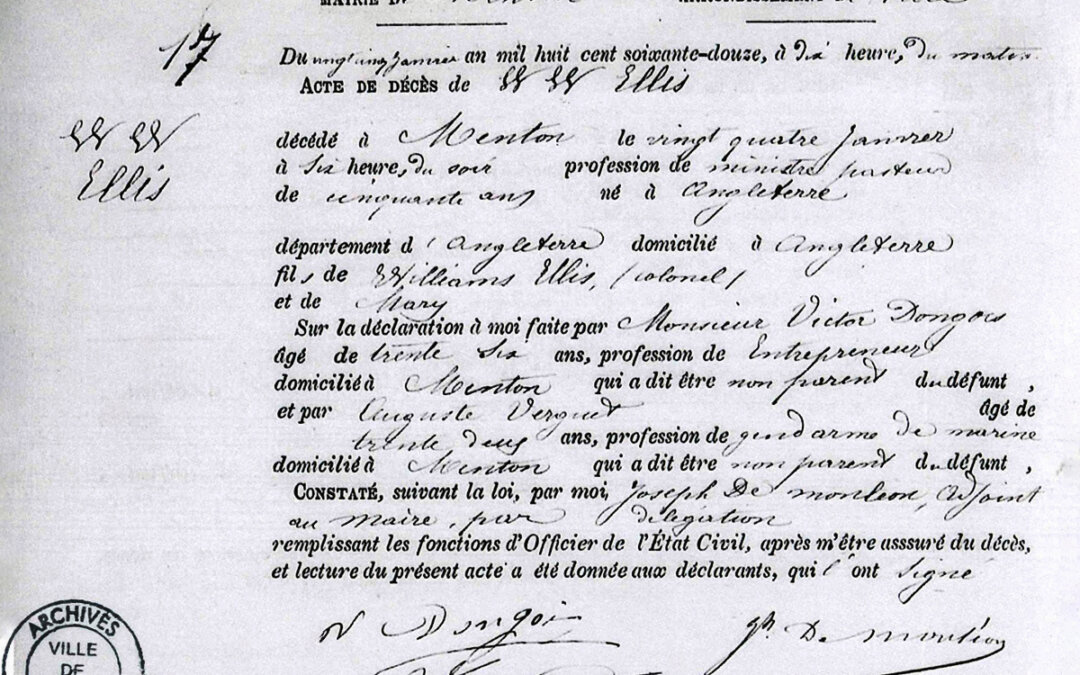 MAIRIE DE
17
Du vingt cinq janvier an mil huit cent soixante-douze, à dix heure, du matin
ACTE DE DÉCÈS de W W Ellis
W W
Ellis
décédé à Menton le vingt quatre janvier
à six heure, du soir profession de ministre pasteur
de cinquante ans né à Angleterre
département d'Angleterre domicilié à Angleterre
fils de Williams Ellis, (colonel)
et de Mary
Sur la déclaration à moi faite par Monsieur Victor Dongois
âgé de trente six ans, profession de Entrepreneur
domicilié à Menton qui a dit être non parent du défunt,
et par Auguste âgé de
trente deux ans, profession de gendarme de marine
domicilié à Menton qui a dit être non parent du défunt,
CONSTATÉ, suivant la loi, par moi, Joseph De monleon, adjoint
au maire, par délégation
remplissant les fonctions d'Officier de l'État Civil, après m'être asssuré du décès,
et lecture du présent acte a été donnée aux déclarants, qui l'ont signé
V Dongois
Jh De monléon
ARCHIVES
VILLE
DE